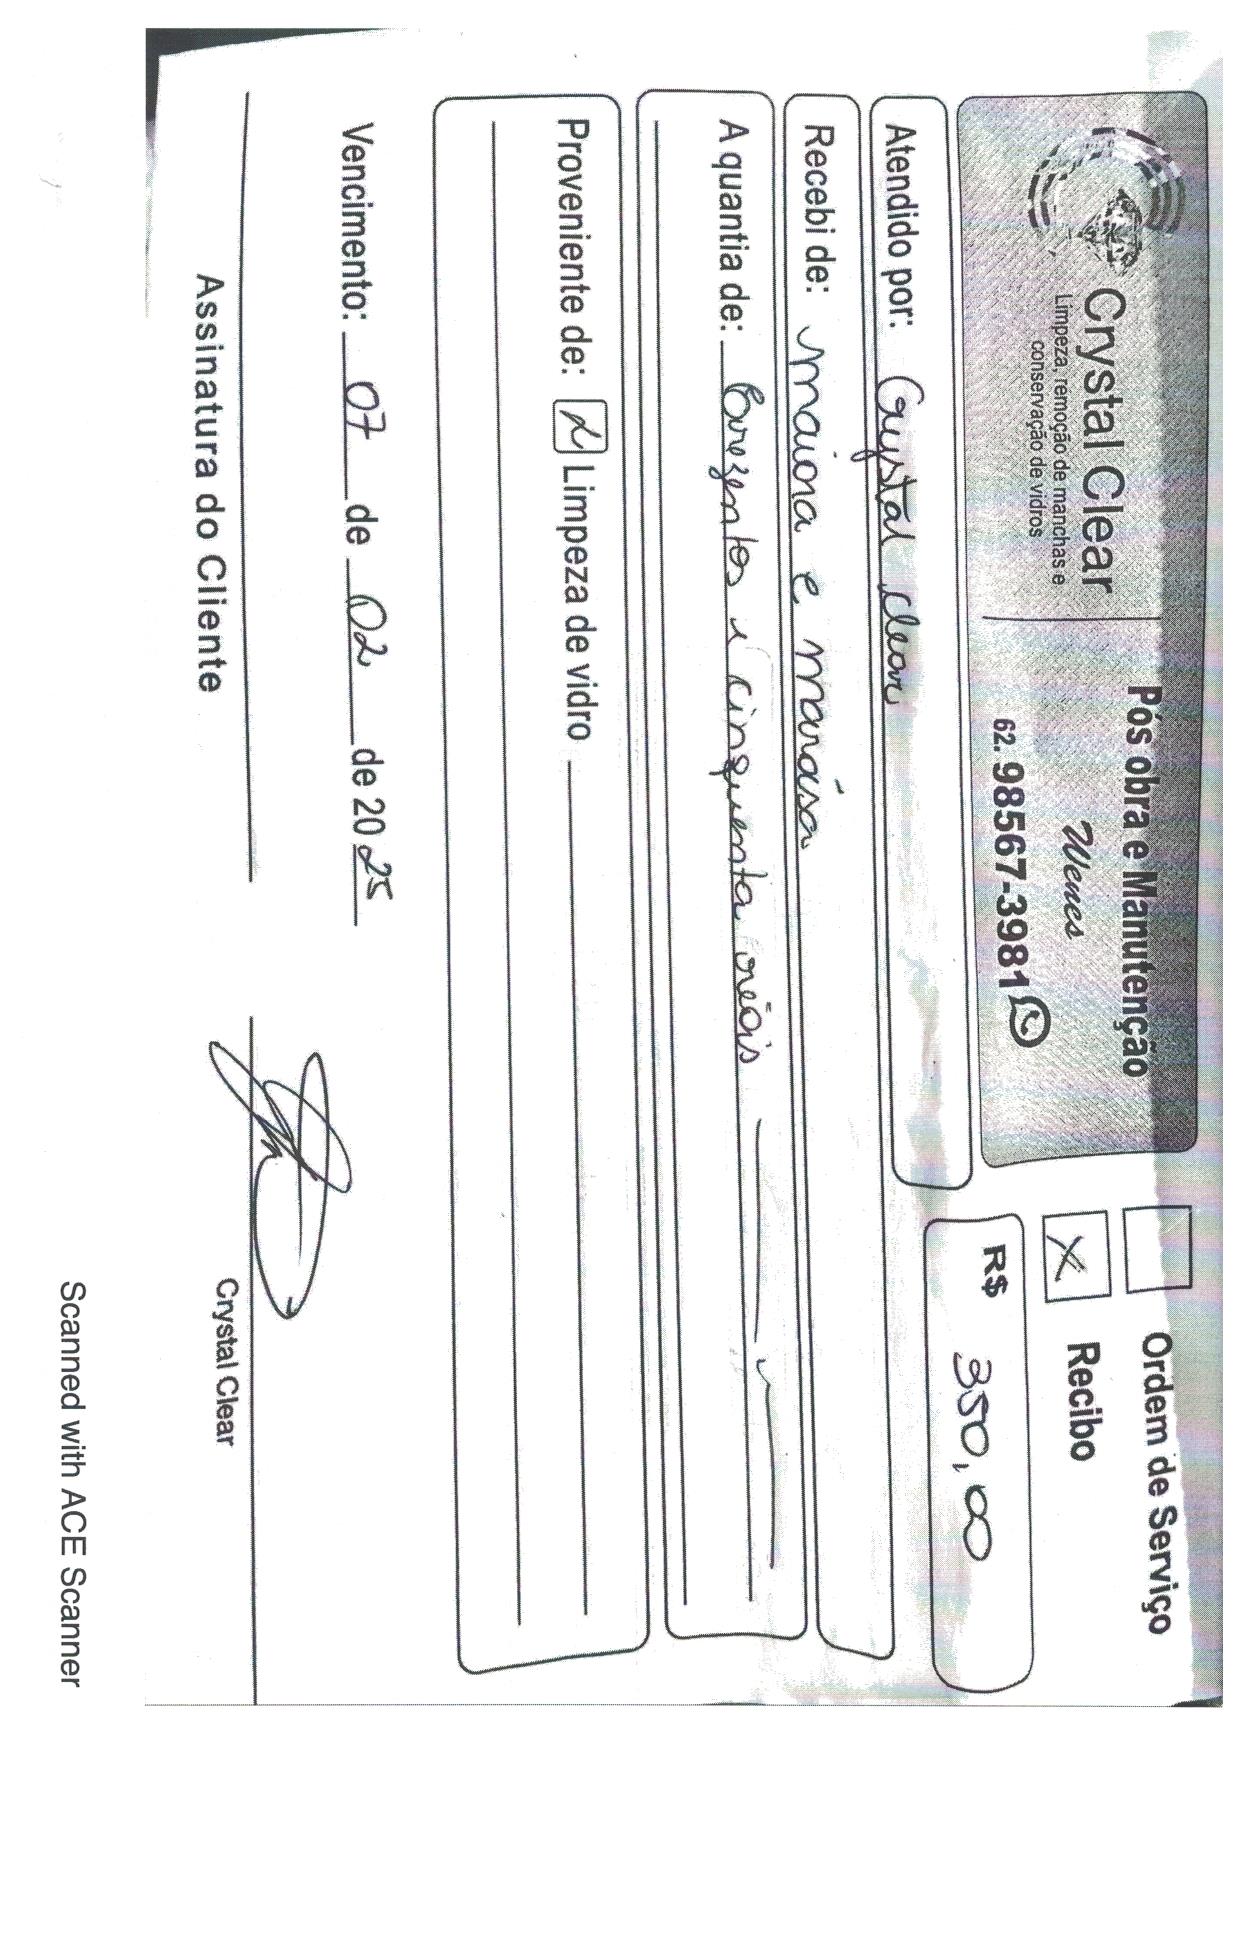 Crystal Clear
Limpeza, remoção de manchas e
conservação de vidros
Pós obra e Manutenção
Wemes
62. 98567-3981
Ordem de Serviço
X Recibo
Atendido por: Crystal clear
R$ 350,00
Recebi de: maiora e
A quantia de: trezentos e cinquenta reais
Proveniente de: Limpeza de vidro
Vencimento: 07 de 02 de 2025
Assinatura do Cliente
Crystal Clear
Scanned with ACE Scanner